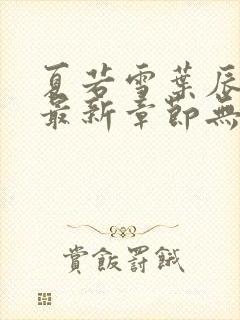 夏若雪葉辰
最新章節無
賞飯罸餓